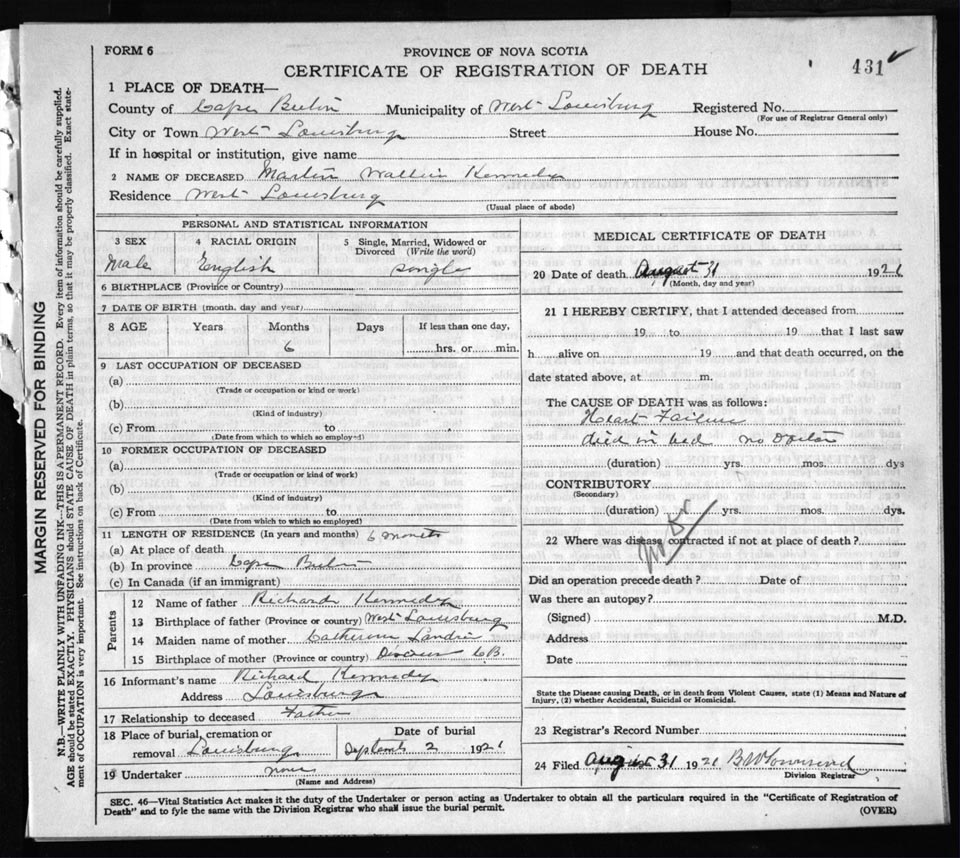 FORM 6
PROVINCE OF NOVA SCOTIA
CERTIFICATE OF REGISTRATION OF DEATH
431
1 PLACE OF DEATH—
County of Cape Breton Municipality of West Louisburg Registered No.
(For use of Registrar General only)
City or Town West Louisburg Street House No.
If in hospital or institution, give name
2 NAME OF DECEASED Martin Kennedy
Residence West Louisburg
(Usual place of abode)
PERSONAL AND STATISTICAL INFORMATION
3 SEX 4 RACIAL ORIGIN 5 Single, Married, Widowed or Divorced (Write the word)
Male English single
6 BIRTHPLACE (Province or Country)
7 DATE OF BIRTH (month, day and year)
8 AGE Years Months Days If less than one day,
6 hrs. or min.
9 LAST OCCUPATION OF DECEASED
(a)
(Trade or occupation or kind or work)
(b)
(Kind of industry)
(c) From to
(Date from which to which so employed)
10 FORMER OCCUPATION OF DECEASED
(a)
(Trade or occupation or kind of work)
(b)
(Kind of industry)
(c) From to
(Date from which to which so employed)
11 LENGTH OF RESIDENCE (In years and months) 6 months
(a) At place of death
(b) In province Cape Breton
(c) In Canada (if an immigrant)
Parents
12 Name of father Richard Kennedy
13 Birthplace of father (Province or country) West Louisburg
14 Maiden name of mother Catherine
15 Birthplace of mother (Province or country) C.B.
16 Informant's name Richard Kennedy
Address Louisburg
17 Relationship to deceased Father
18 Place of burial, cremation or removal Louisburg
Date of burial
September 2 1921
19 Undertaker none
(Name and Address)
MEDICAL CERTIFICATE OF DEATH
20 Date of death August 31 1921
(Month, day and year)
21 I HEREBY CERTIFY, that I attended deceased from
19 to 19 that I last saw
h alive on 19 and that death occurred, on the
date stated above, at m.
The CAUSE OF DEATH was as follows:
Heart Failure
died in bed no Doctor
(duration) yrs. mos. dys
CONTRIBUTORY
(Secondary)
(duration) yrs. mos. dys.
No Dr
22 Where was disease contracted if not at place of death?
Did an operation precede death? Date of
Was there an autopsy?
(Signed) M.D.
Address
Date
State the Disease causing Death, or in death from Violent Causes, state (1) Means and Nature of
Injury, (2) whether Accidental, Suicidal or Homicidal.
23 Registrar's Record Number
24 Filed August 31 1921 B W Townsend
Division Registrar
SEC. 46—Vital Statistics Act makes it the duty of the Undertaker or person acting as Undertaker to obtain all the particulars required in the "Certificate of Registration of
Death" and to fyle the same with the Division Registrar who shall issue the burial permit.
(OVER)
MARGIN RESERVED FOR BINDING
N.B.—WRITE PLAINLY WITH UNFADING INK—THIS IS A PERMANENT RECORD. Every item of information should be carefully supplied.
AGE should be stated EXACTLY. PHYSICIANS should STATE CAUSE OF DEATH in plain terms, so that it may be properly classified. Exact state-
ment of OCCUPATION is very important. See instructions on back of Certificate.